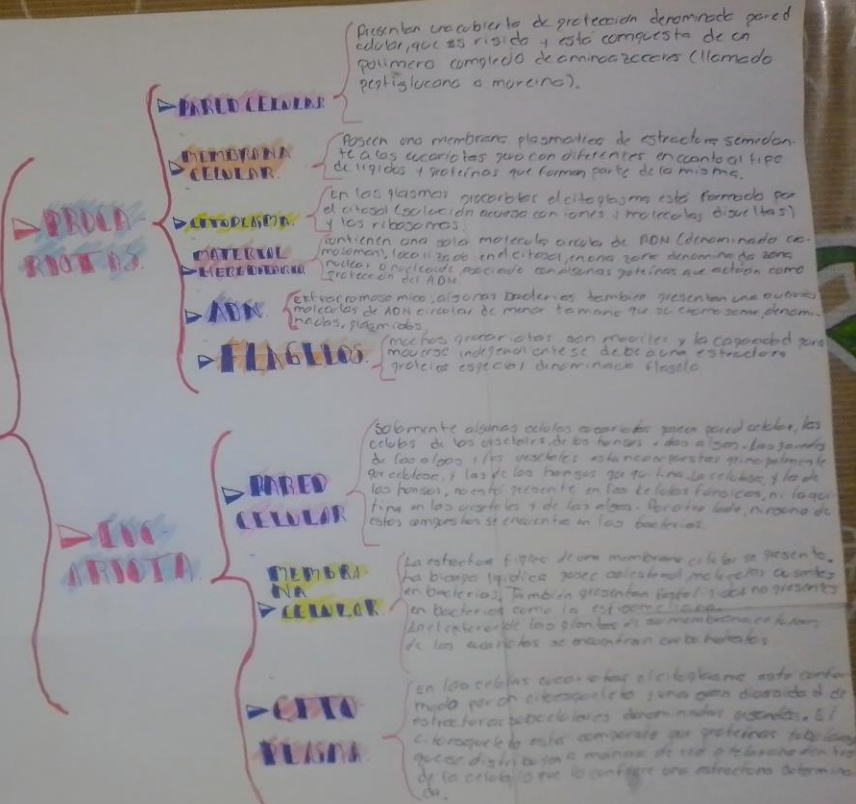 Presentan una cubierta de protección denominada pared
celular, que es rigida y está compuesta de un
polimero complejo de aminoazucares (llamado
peptiglucano o mureina).
PARED CELULAR
Poseen una membrana plasmatica de estructura semejan-
te a los eucariotas pero con diferentes en cuanto al tipo
de lipidos y proteinas que forman parte de la misma.
MEMBRANA
CELULAR
En las plasmas procariotas el citoplasma está formado por
el citosol (solución acuosa con iones y moleculas disueltas)
y los ribosomas
CITOPLASMA
PROCA
RIOTAS
contienen una sola molecula circular de ADN (denominado cro-
mosoma), localizado en el citosol, en una zona denominada zona
nuclear o nucleoide asociado con algunas proteinas que actúan como
protección del ADN.
MATERIAL
HEREDITARIO
extracromosomico, algunas bacterias tambien presentan una
moleculas de ADN circular de menor tamaño que denomi-
nadas, plasmidos
ADN
muchos procariotas son moviles y la capacidad para
moverse independiente se debe a una estructura
proteica especial denominada flagelo
FLAGELOS
Solamente algunas celulas eucariotas poseen pared celular, las
celulas de los vegetales, de los hongos y las algas. Las paredes
de las algas y los vegetales estan compuestas principalmente
por celulosa, y las de los hongos por quitina. La celulosa, y la de
los hongos, no está presente en las celulas fúngicas, ni la qui
tina en los vegetales y de las algas. Por otro lado, ninguno de
estos compuestos se encuentra en las bacterias.
PARED
CELULAR
EUC-
ARIOTA
La estructura de una membrana celular se presenta.
La bicapa lipidica posee colesterol, ausentes
en bacterias. También presentan no presentes
en bacterias como la
de las membrana
de los eucariotas se encuentran carbohidratos
MEMBRA
NA
CELULAR
En las celulas eucariotas el citoplasma está confor
mado por un citoesqueleto y una gran diversidad de
estructuras subcelulares denominadas organelas. El
citoesqueleto está compuesto por proteinas
que se distribuyen a manera de red o telaraña dentro
de la celula lo que le confiere una estructura determina
da.
CITO
PLASMA